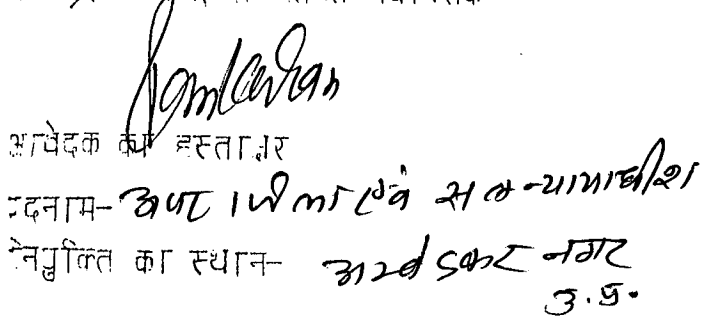 Ramkaran
आवेदक का हस्ताक्षर
पदनाम- अपर जिला एवं सत्र न्यायाधीश
नियुक्ति का स्थान- अम्बेडकर नगर
उ.प्र.